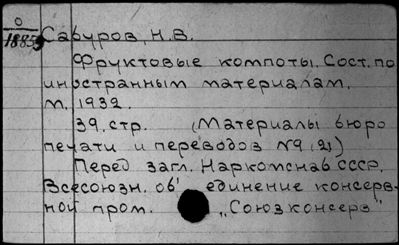 О
1885
Сабуров, Н.В.
Фруктовые компоты. Сост. по
иностранным материалам.
М. 1932.
39. стр. (Материалы бюро
печати и переводов №9 (21)
Перед загл. Наркомснаб СССР,
Всесоюзн. об'единение консерв-
ной пром. „Союзконсерв"